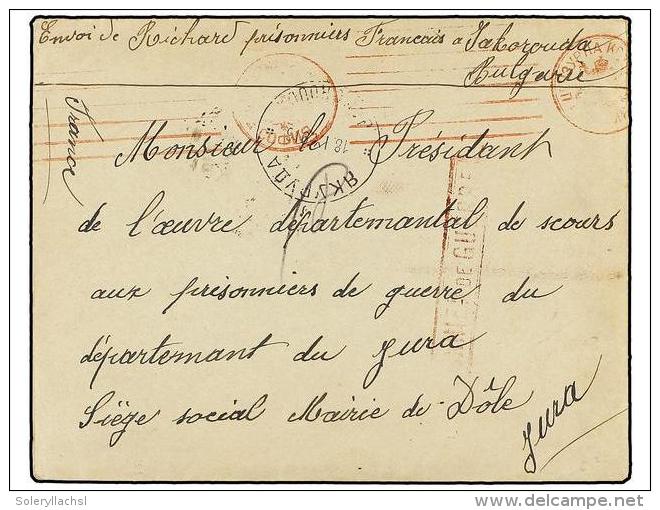 Envoi de Richard prisonniers Francais a Jakorouda
Bulgarie
France
Monsieur le Présidant
de l'œuvre départemantal de scours
aux prisonniers de guerre du
départemant du Jura
Siège social Mairie de Dôle
Jura
ЯКОРУДА
18 I
DE GUERRE
Soleryllachsl
delcampe.net